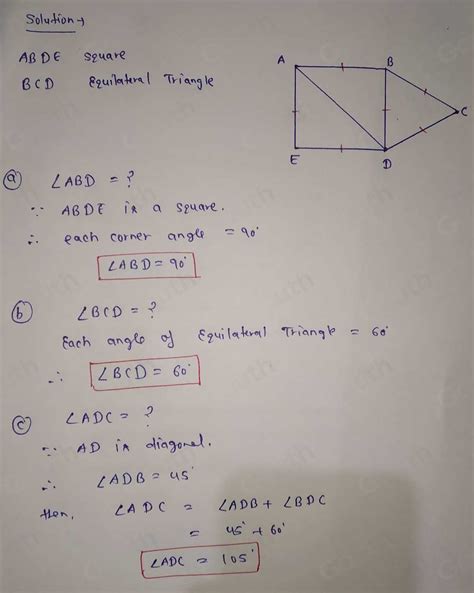 Solution →
ABDE square
BCD Equilateral Triangle
A
B
C
E
D
(a) ∠ABD = ?
∵ ABDE is a square.
∴ each corner angle = 90°
∠ABD = 90°
(b) ∠BCD = ?
Each angle of Equilateral Triangle = 60°
∴ ∠BCD = 60°
(c) ∠ADC = ?
∵ AD is diagonal.
∴ ∠ADB = 45°
then, ∠ADC = ∠ADB + ∠BDC
= 45° + 60°
∠ADC = 105°